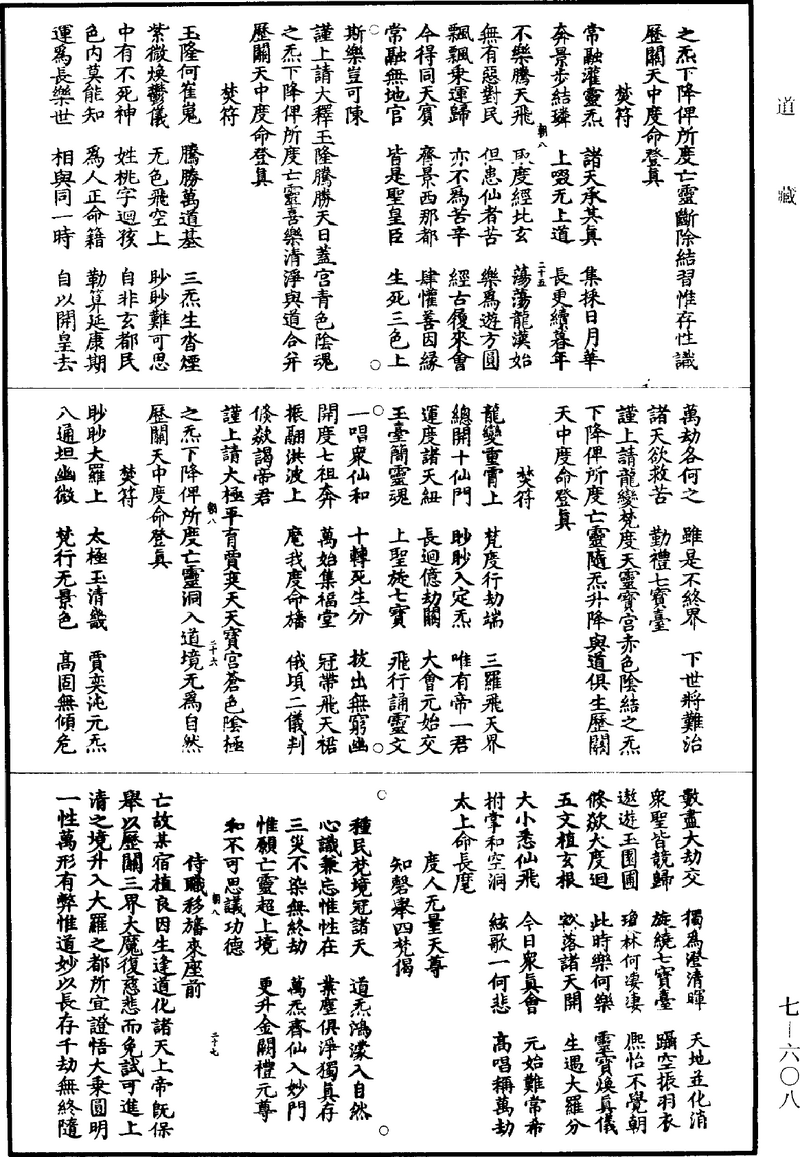 道藏
之炁下降俾所度亡靈斷除結習惟存性識
歷關天中度命登真
焚符
常融灌靈炁　諸天承其真　集採日月華
奔景步結璘　上啜无上道　長更續暮年
不樂騰天飛　取度經比玄　蕩蕩龍漢始
朝八　二十五
無有惡對民　但患仙者苦　樂為遊方圓
飄飄乘運歸　亦不為苦辛　經古履來會
今得同天賓　齊景西那都　肆懽善因緣
常融無地官　皆是聖皇臣　生死三色上
斯樂豈可陳
謹上請大釋玉隆騰勝天日蓋宮青色陰魂
之炁下降俾所度亡靈喜樂清淨與道合并
歷關天中度命登真
焚符
玉隆何崔嵬　騰勝萬道基　三炁生沓煙
紫微煥鬱儀　无色飛空上　眇眇難可思
中有不死神　姓桃字迴孩　自非玄都民
色內莫能知　為人正命籍　勒算延康期
運為長樂世　相與同一時　自以開皇去
萬劫各何之　雖是不終界　下世將難治
諸天欲救苦　勤禮七寶臺
謹上請龍變梵度天靈寶宮赤色陰結之炁
下降俾所度亡靈隨炁升降與道俱生歷關
天中度命登真
焚符
龍變重霄上　梵度行劫端　三羅飛天界
總開十仙門　眇眇入定炁　唯有帝一君
運度諸天紐　長迴億劫關　大會元始交
玉臺簡靈魂　上聖旋七寶　飛行誦靈文
一唱眾仙和　十轉死生分　拔出無窮幽
開度七祖奔　萬始集福堂　冠帶飛天裙
振翮洪波上　麾我度命旛　俄頃二儀判
倏欻謁帝君
謹上請大極平育賈奕天天寶宮蒼色陰極
之炁下降俾所度亡靈洞入道境无為自然
朝八　二十六
歷關天中度命登真
焚符
眇眇大羅上　太極玉清畿　賈奕沌元炁
八通坦幽微　梵行无景色　高固無傾危
數盡大劫交　獨為澄清暉　天地並化消
眾聖皆競歸　旋繞七寶臺　躡空振羽衣
遨遊玉園圃　瓊林何淒淒　熙怡不覺朝
倏欻大度迴　此時樂何樂　靈寶煥真儀
五文植玄根　欻落諸天開　生遇大羅分
大小悉仙飛　今日眾真會　元始難常希
拊掌和空洞　絃歌一何悲　高唱稱萬劫
太上命長麾
度人无量天尊
知磬舉四梵偈
種民梵境冠諸天　道炁鴻濛入自然
心識兼忘惟性在　業塵俱淨獨真存
三災不染無終劫　萬炁齊仙入妙門
惟願亡靈超上境　更升金闕禮元尊
和不可思議功德
朝八　二十七
侍職移旛來座前
亡故某宿植良因生逢道化諸天上帝既保
舉以歷關三界大魔復慈悲而免試可進上
清之境升入大羅之都所宜證悟大乘圓明
一性萬形有弊惟道妙以長存千劫無終隨
七－六〇八